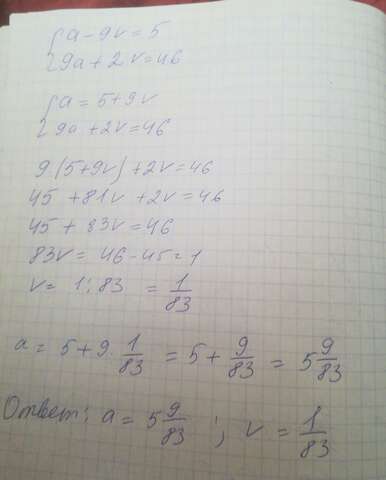 {a - 9v = 5
9a + 2v = 46
{a = 5+9v
9a + 2v = 46
9(5+9v) + 2v = 46
45 + 81v + 2v = 46
45 + 83v = 46
83v = 46 - 45 = 1
v = 1:83 = 1/83
a = 5 + 9·1/83 = 5 + 9/83 = 5 9/83
Ответ: a = 5 9/83 ; v = 1/83